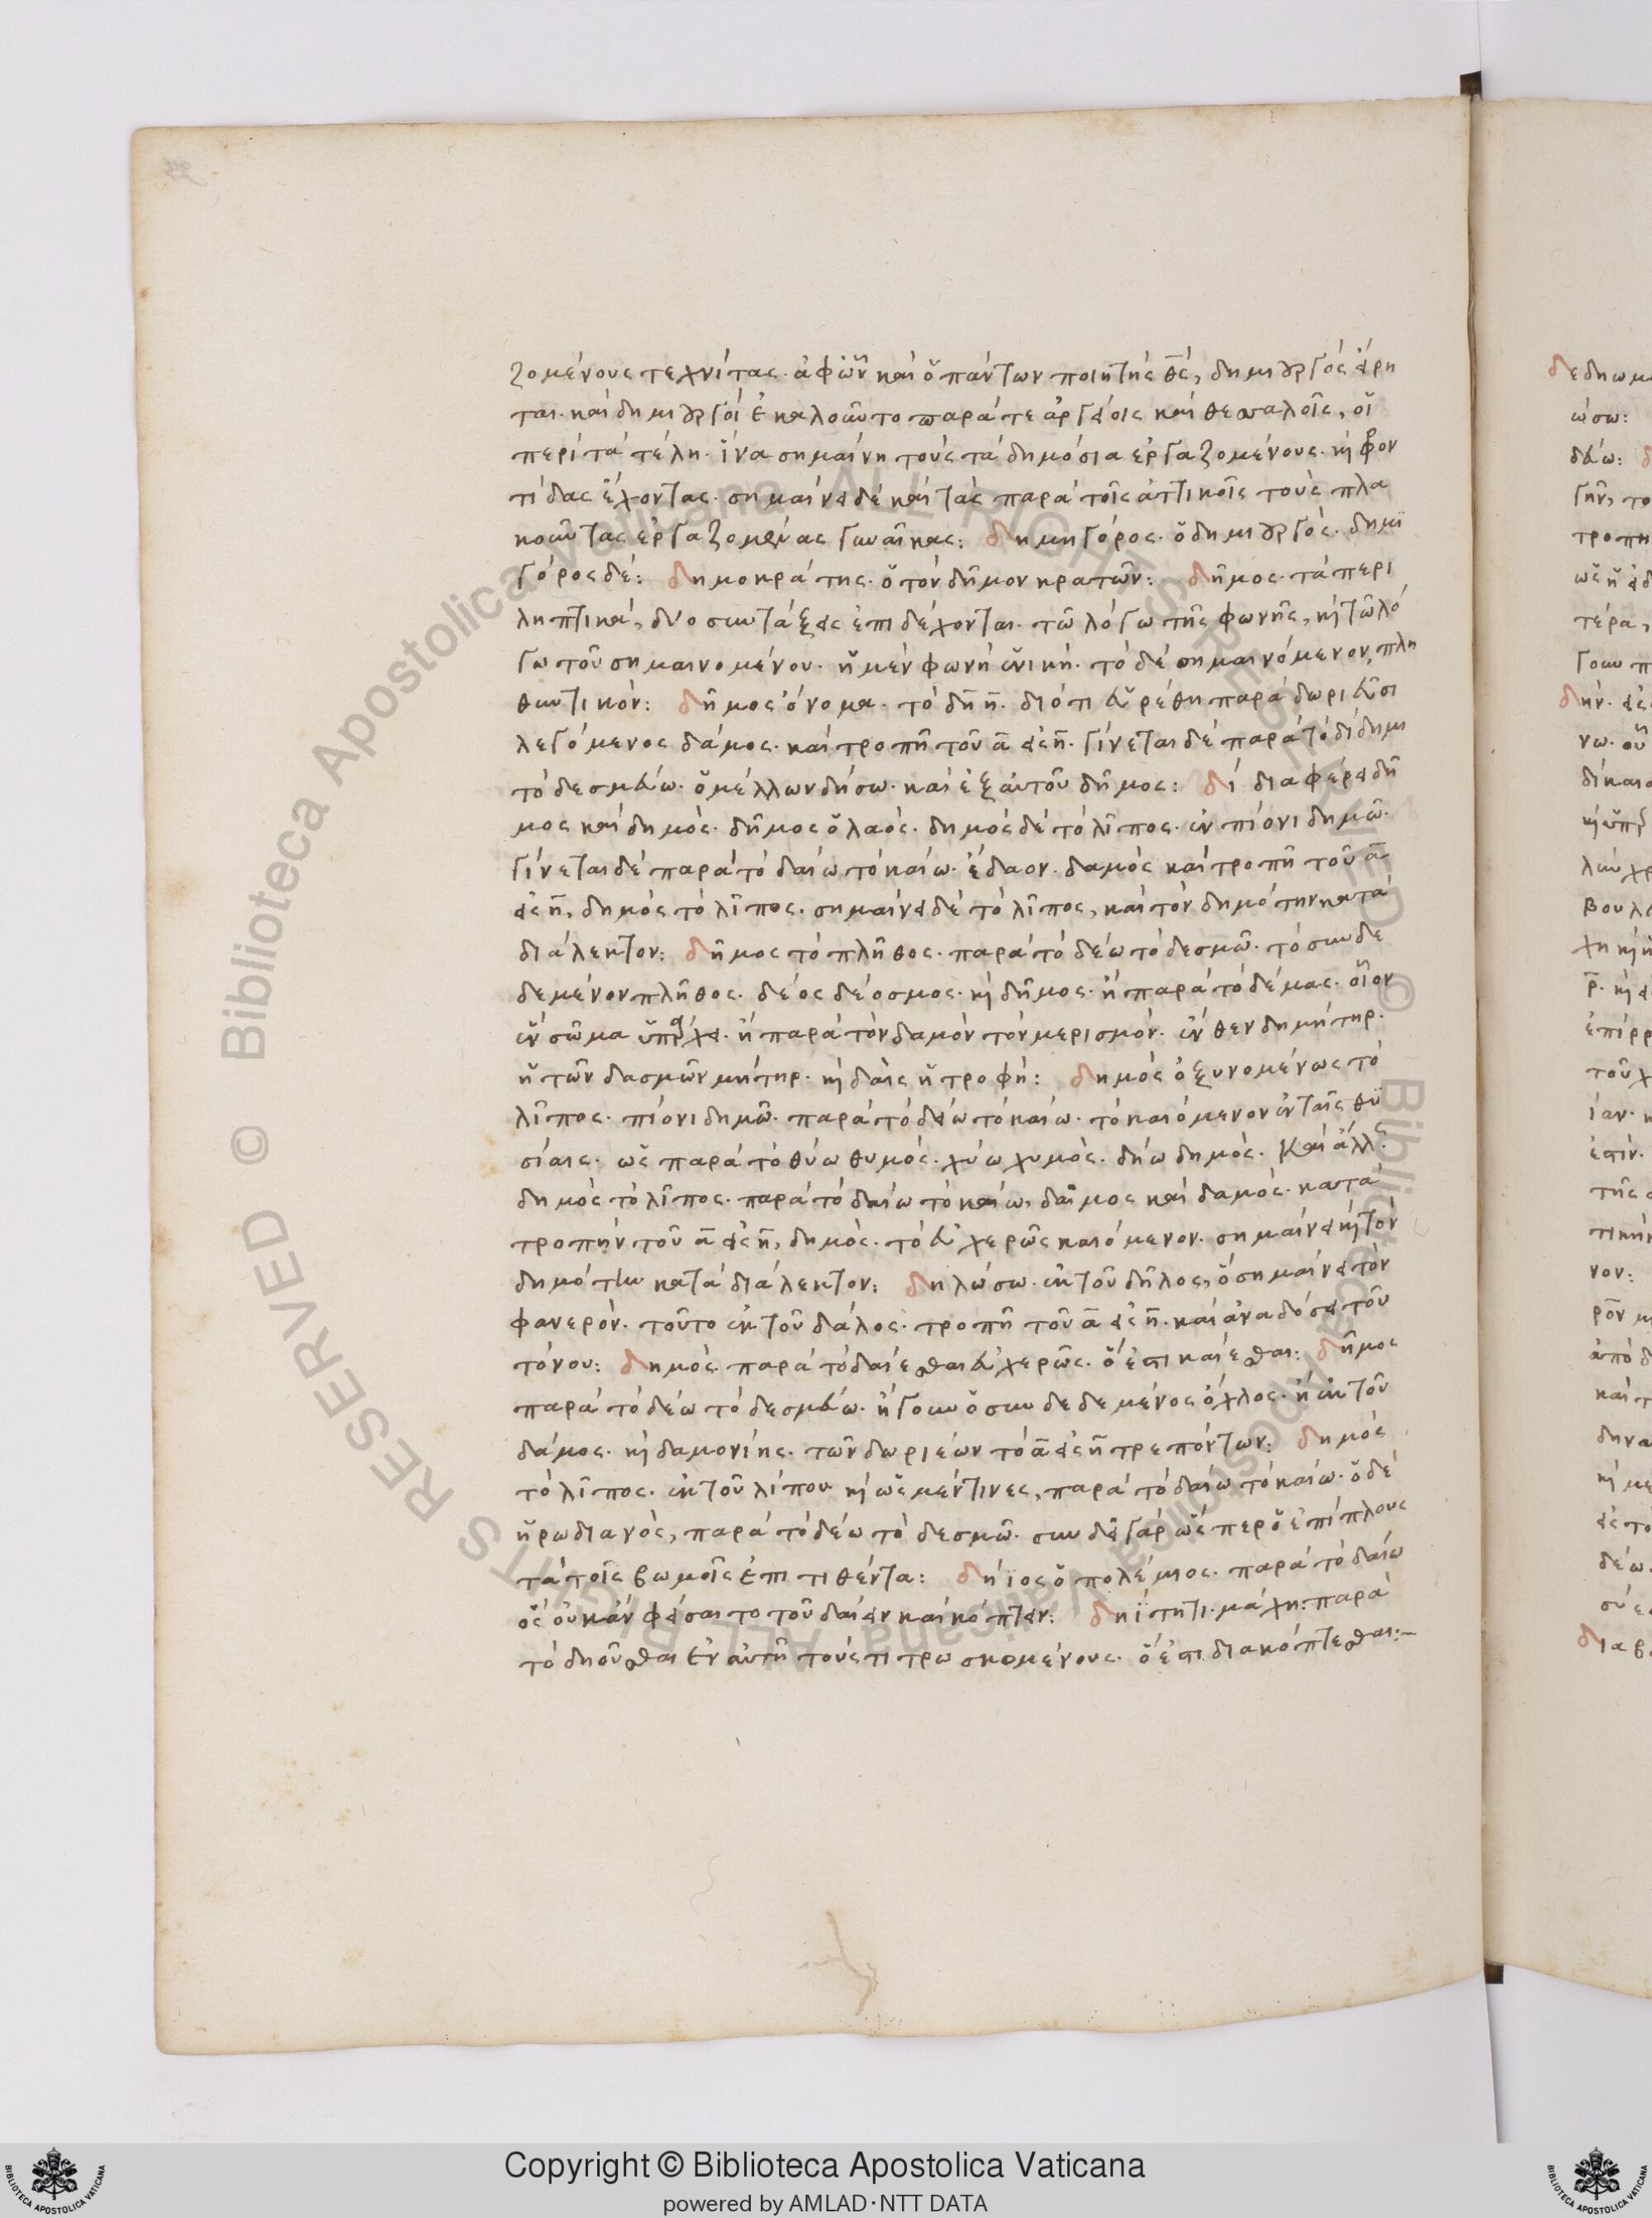 ζομένους τεχνίτας· ἀφ ὧν καὶ ὁ πάντων ποιητὴς θς, δημιουργὸς εἴρη
ται· καὶ δημιουργοὶ ἐκαλοῦντο παρά τε ἀργείοις καὶ θεσσαλοῖς, οἱ
περὶ τὰ τέλη· ἵνα σημαίνη τοὺς τὰ δημόσια ἐργαζομένους· κὶ φρον
τίδας ἔχοντας· σημαίνει δὲ καὶ τὰς παρὰ τοῖς ἀττικοῖς τοὺς πλα
κοῦντας ἐργαζομένας γυναῖκας: δημηγόρος· ὁ δημιουργός· δημϊ
γόρος δέ: δημοκράτης· ὁ τὸν δῆμον κρατῶν: δῆμος· τὰ περι
ληπτικὰ, δύο συντάξεις ἐπιδέχονται· τῶ λόγω τῆς φωνῆς, κὶ τῶ λό
γω τοῦ σημαινομένου· ἡ μὲν φωνὴ ἑνικὴ· τὸ δὲ σημαινόμενον, πλη
θυντικόν: δῆμος ὄνομα· τὸ δη η· διότι εὑρέθη παρὰ δωριεῦσι
λεγόμενος δάμος· καὶ τροπῆ τοῦ α εἰς η· γίνεται δὲ παρὰ τὸ δίδημι
τὸ δεσμεύω· ὁ μέλλων δήσω· καὶ ἐξ αὐτοῦ δῆμος: δι διαφέρει δῆ
μος καὶ δημός· δῆμος ὁ λαός· δημὸς δὲ τὸ λῖπος· ἐν πίονι δημῶ·
γίνεται δὲ παρὰ τὸ δαίω τὸ καίω· ἔδαον· δαμός καὶ τροπῆ τοῦ α
εἰς η, δημός τὸ λῖπος· σημαίνει δὲ τὸ λῖπος, καὶ τὸν δημότην κατὰ
διάλεκτον: δῆμος τὸ πλῆθος· παρὰ τὸ δέω τὸ δεσμῶ· τὸ συνδε
δεμένον πλῆθος· δέος δέοσμος· κὶ δῆμος· ἢ παρὰ τὸ δέμας· οἷον
ἓν σῶμα ὑπάρχει· ἢ παρὰ τὸν δαμὸν τὸν μερισμόν· ἔνθεν δημήτηρ·
ἡ τῶν δασμῶν μήτηρ· κὶ δαὶς ἡ τροφή: δημὸς ὀξυνομένως τὸ
λῖπος· πίονι δημῶ· παρὰ τὸ δαίω τὸ καίω· τὸ καιόμενον ἐν ταῖς θυ
σίαις· ὡς παρὰ τὸ θύω θυμός· χύω χυμός· δήω δημός· Καὶ ἄλλως·
δημὸς τὸ λῖπος· παρὰ τὸ δαίω τὸ καίω, δαῖμος καὶ δαμός· κατὰ
τροπὴν τοῦ α εἰς η, δημός· τὸ εὐχερῶς καιόμενον· σημαίνει κὶ τὸν
δημότην κατὰ διάλεκτον: δηλώσω· ἐκ τοῦ δῆλος, ὃ σημαίνει τὸν
φανερόν· τοῦτο ἐκ τοῦ δάλος· τροπῆ τοῦ α εἰς η· καὶ ἀναδόσει τοῦ
τόνου: δημός· παρὰ τὸ δαίεσθαι εὐχερῶς· ὅ ἐστι καίεσθαι: δῆμος
παρὰ τὸ δέω τὸ δεσμεύω· ἤγουν ὁ συνδεδεμένος ὄχλος· ἢ ἐκ τοῦ
δάμος· κὶ δαμονίης· τῶν δωριέων τὸ α εἰς η τρεπόντων: δημὸς
τὸ λῖπος· ἐκ τοῦ λίπου κὶ ὡς μέν τινες, παρὰ τὸ δαίω τὸ καίω· ὁ δὲ
ἡρωδιανός, παρὰ τὸ δέω τὸ δεσμῶ· συνδεῖ γὰρ ὥσπερ ὁ ἐπίπλους
τὰ τοῖς βωμοῖς ἐπιτιθέντα: δήϊος ὁ πολέμιος· παρὰ τὸ δαίω
ὃς οὐκ ἂν φείσαιτο τοῦ δαίειν καὶ κόπτειν: δηϊτητι· μάχη: παρὰ
τὸ δηοῦσθαι ἐν αὐτῆ τοὺς τιτρωσκομένους· ὅ ἐστι διακόπτεσθαι:–
Copyright © Biblioteca Apostolica Vaticana
powered by AMLAD·NTT DATA